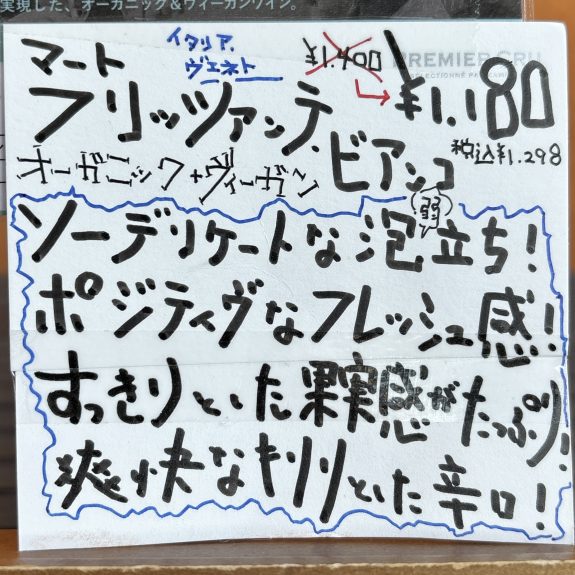 実現した、オーガニック&ヴィーガンワイン。
イタリア.
ヴェネト
¥1.400
PREMIER CRU
マート
¥1.180
フリッツァンテ.
ビアンコ
税込¥1.298
オーガニック+ヴィーガン
弱
ソーデリケートな泡立ち!
ポジティヴなフレッシュ感!
すっきりといた果実感がたっぷり!
爽快なキリリといた辛口!